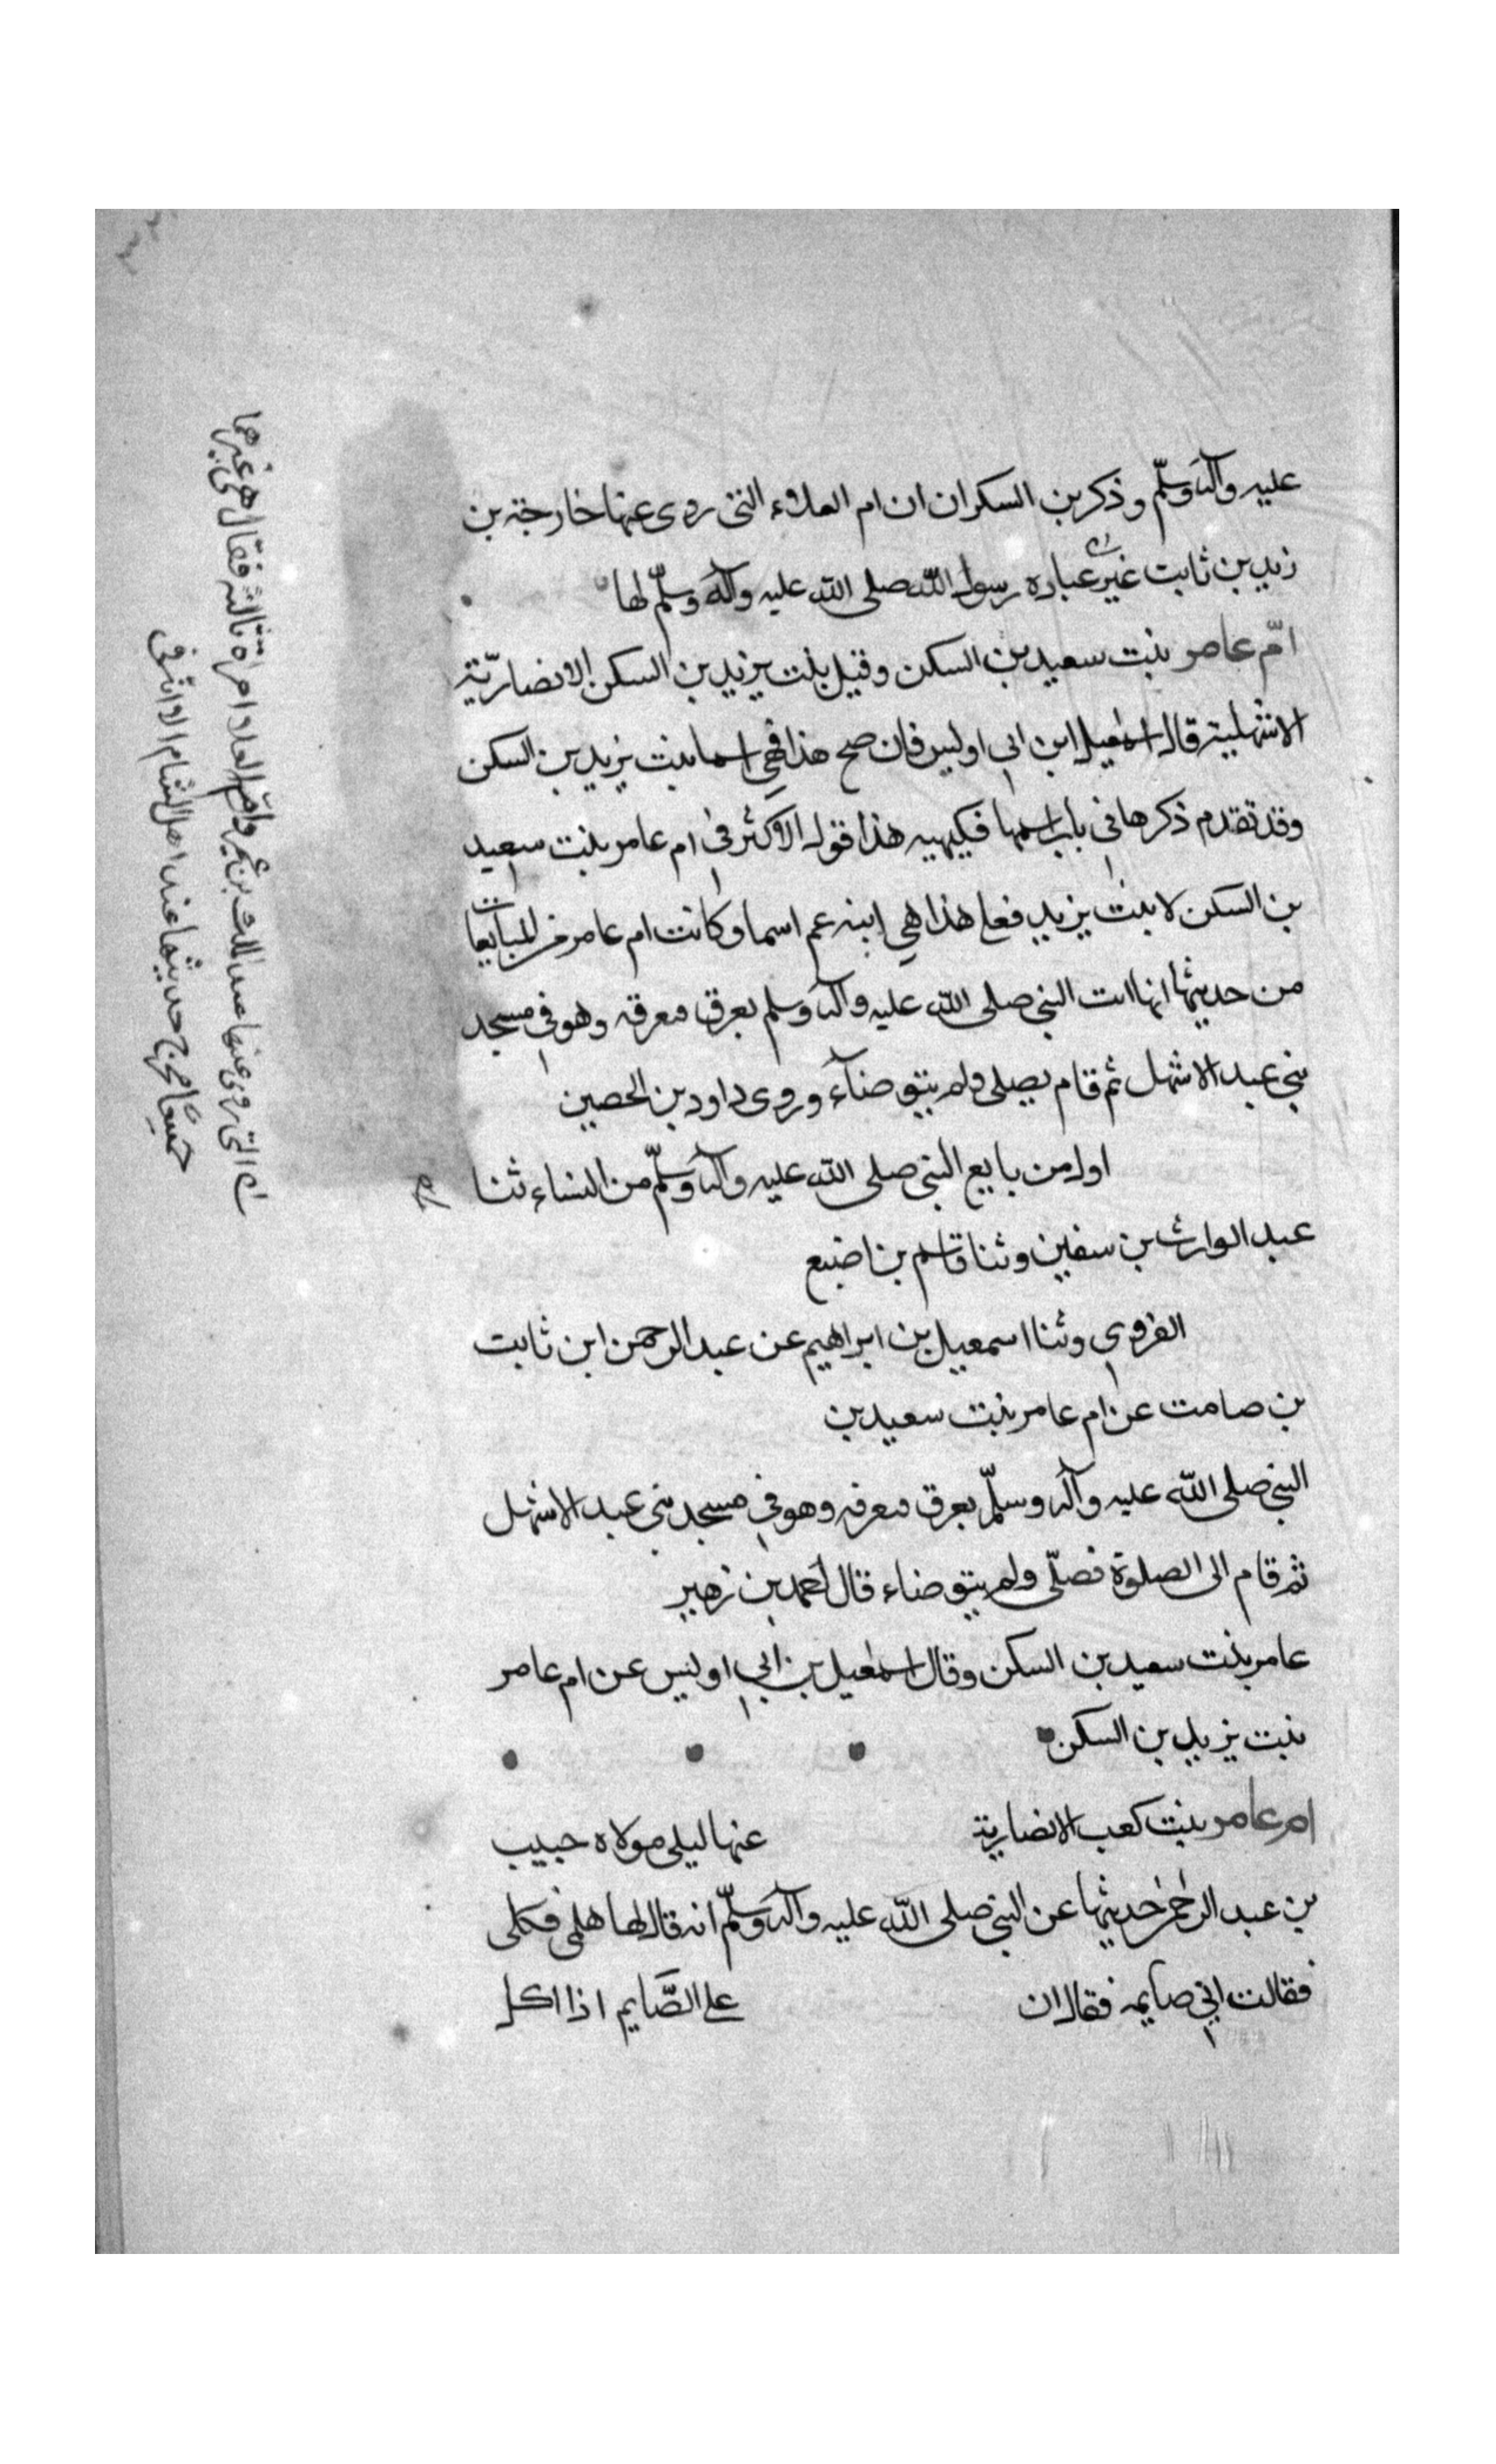 عليه وآله وسلّم وذكر بن السكران ان ام العلاء التى روى عنها خارجة بن
زيد بن ثابت غير عباره رسول الله صلى الله عليه وآله وسلّم لها
امّ عامر بنت سعيد بن السكن وقيل بنت يزيد بن السكن الانصاريّة
الاشهلية قال اسمعيل ابن ابى اوليس فان صح هذا فهي اسما بنت يزيد بن السكن
وقد تقدم ذكرها فى باب اسمها فكيهيه هذا قول الاكثر فى ام عامر بنت سعيد
بن السكن لا بنت يزيد فعلى هذا هي ابنه عم اسما وكانت ام عامر من المبايعات
من حديثها انها اتت النبى صلى الله عليه وآله وسلم بعرق فعرقه وهو في مسجد
بني عبد الاشهل ثم قام يصلى ولم يتوضاء وروى داود بن الحصين
اول من بايع النبى صلى الله عليه وآله وسلّم من النساء ثنا
عبد الوارث بن سفين وثنا قاسم بن اضبع
الفروي وثنا اسمعيل بن ابراهيم عن عبد الرحمن ابن ثابت
بن صامت عن ام عامر بنت سعيد بن
النبى صلى الله عليه وآله وسلّم بعرق فعرقه وهو فى مسجد بنى عبد الاشهل
ثم قام الى الصلوة فصلّى ولم يتوضاء قال احمد بن زهير
عامر بنت سعيد بن السكن وقال اسمعيل بن ابي اوليس عن ام عامر
بنت يزيد بن السكن
ام عامر بنت كعب الانصارية عنها ليلى مولاه حبيب
بن عبد الرحمن حديثها عن النبى صلى الله عليه وآله وسلّم انه قال لها هلمى فكلى
فقالت اني صايمه فقال ان على الصّايم اذا اكل
التى روى عنها عبد الملك بن عمير وامّ العلا امراة ثالثه فقال هى غيرهما
جميعًا مخرج حديثها عند اهل الشام